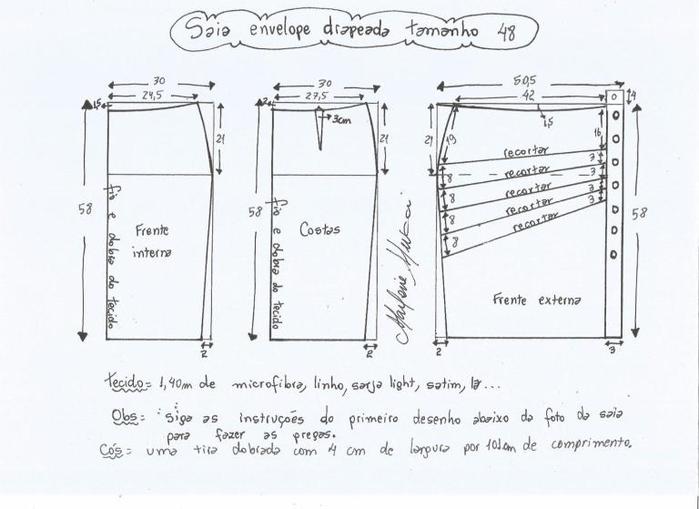 Saia envelope drapeada tamanho 48
30
24,5
1,5
21
58
Frente
interna
fio e dobra do tecido
2
30
27,5
2
3cm
21
58
Costas
fio e dobra do tecido
2
50,5
42
4
1,5
21
19
16
recortar
3
recortar
3
8
recortar
3
8
recortar
3
8
recortar
8
58
Frente externa
2
3
tecido = 1,40m de microfibra, linho, sarja light, cetim, lã...
Obs = siga as instruções do primeiro desenho abaixo da foto da saia
para fazer as pregas.
Cós = uma tira dobrada com 4 cm de largura por 101cm de comprimento.